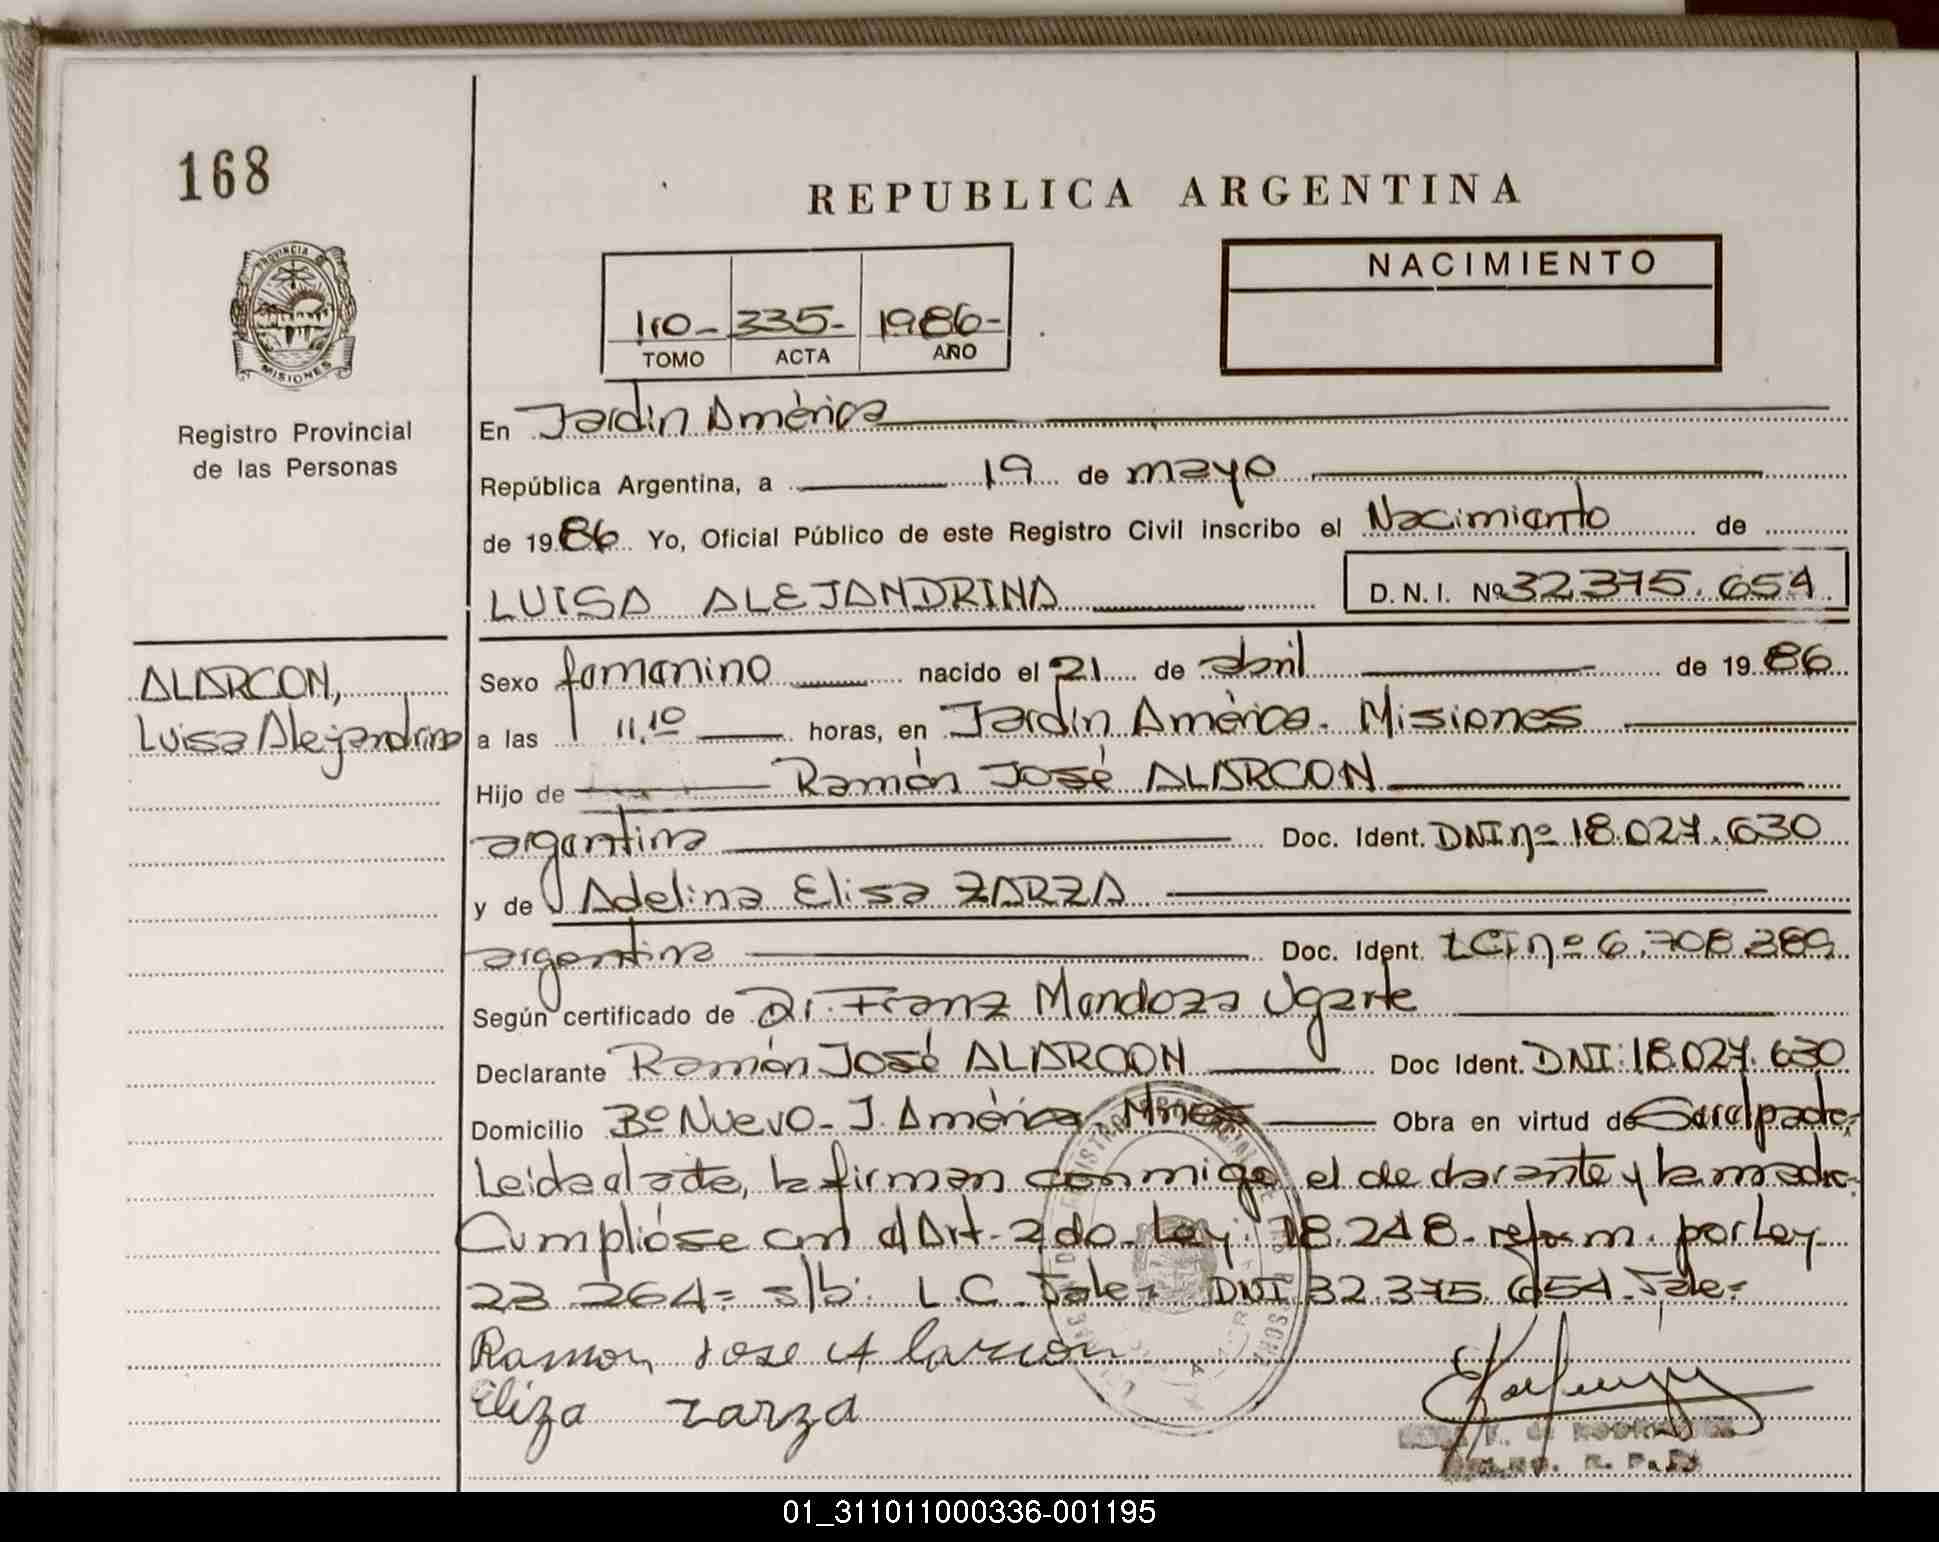 168
REPUBLICA ARGENTINA
PROVINCIA DE
MISIONES
NACIMIENTO
1ro- 335- 1986-
TOMO ACTA AÑO
Registro Provincial
de las Personas
En Jardín América
República Argentina, a 19 de mayo
de 1986 Yo, Oficial Público de este Registro Civil inscribo el Nacimiento de
LUISA ALEJANDRINA D.N.I. Nº 32.375.654
ALARCON,
Luisa Alejandrina
Sexo femenino nacido el 21 de abril de 1986
a las 11.10 horas, en Jardín América. Misiones
Hijo de Ramón José ALARCON
argentina Doc. Ident. DNI nº 18.027.630
y de Adelina Elisa ZARZA
argentina Doc. Ident. LC nº 6.708.389
Según certificado de Dr. Franz Mendoza Ugarte
Declarante Ramón José ALARCON Doc Ident. DNI: 18.027.630
Domicilio Bº Nuevo - J. América Mnes Obra en virtud de
Leida el acta, la firman conmigo el declarante y la madre.
Cumplióse con el Art. 2do. Ley: 18.248. reform. por Ley
23.264= s/b: L.C. Vale= DNI 32.375.654. Vale=
Ramon Jose Alarcon
Eliza Zarza
01_311011000336-001195